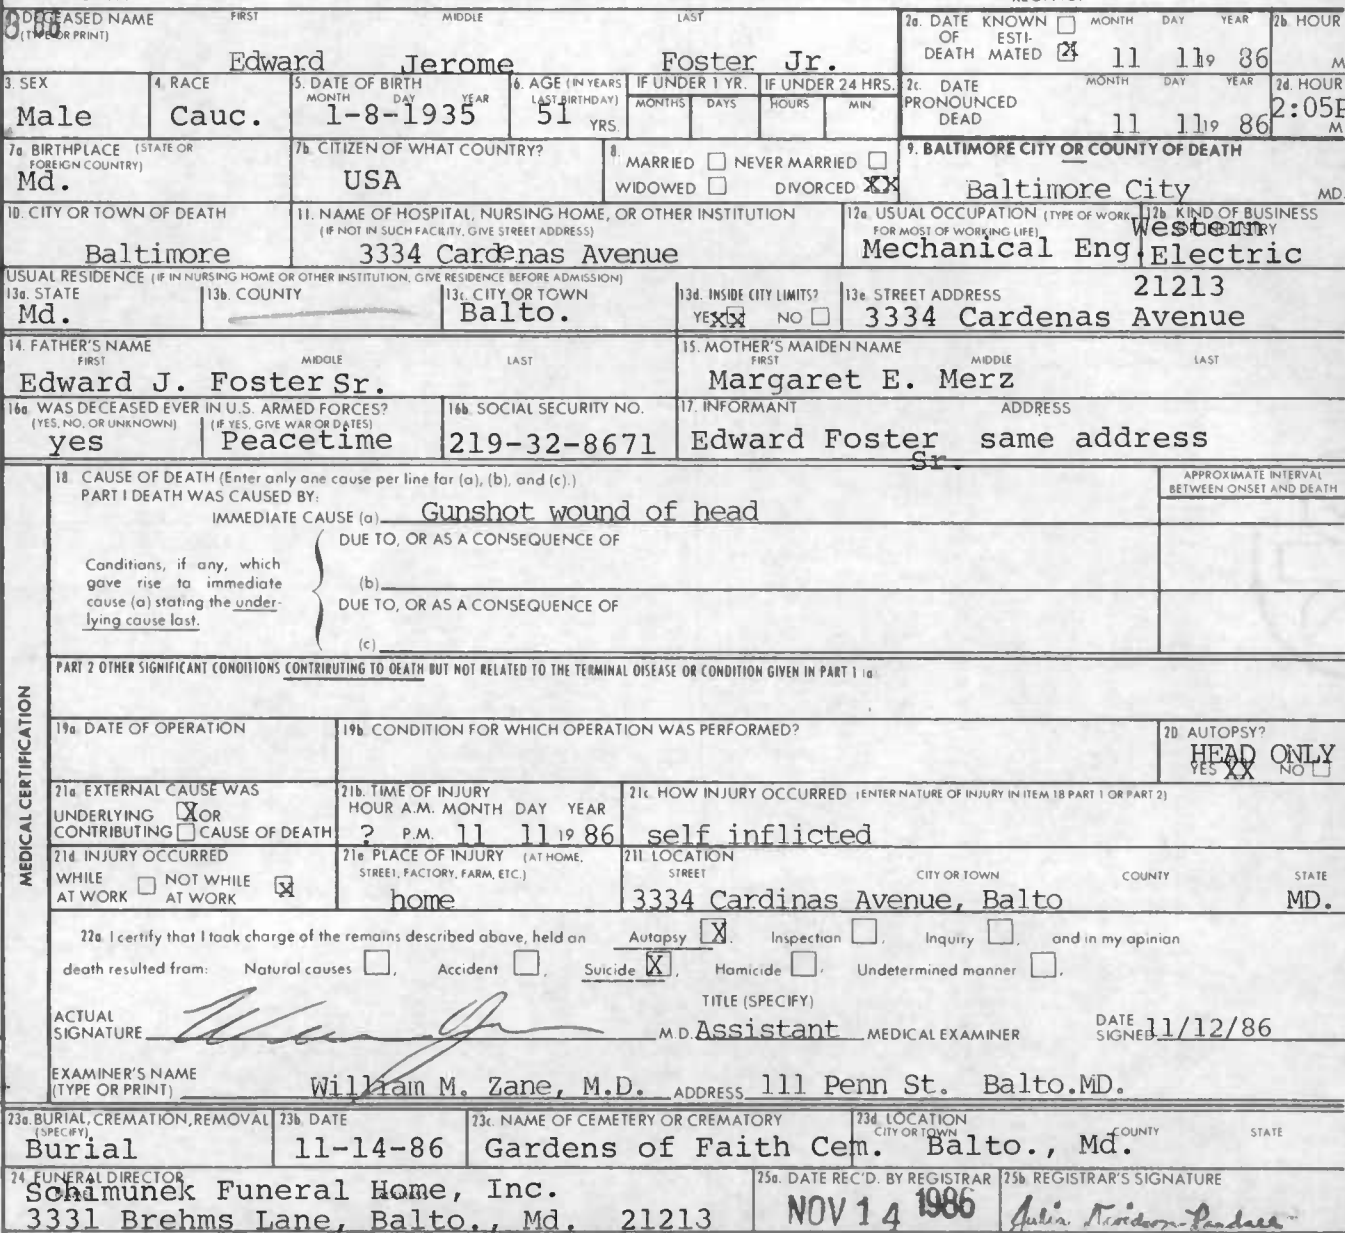 DECEASED NAME FIRST MIDDLE LAST
(TYPE OR PRINT)
Edward Jerome Foster Jr.
2a. DATE OF DEATH KNOWN ☐ ESTIMATED ☒ MONTH DAY YEAR
11 11 19 86
2b. HOUR
M
3. SEX
Male
4. RACE
Cauc.
5. DATE OF BIRTH
MONTH DAY YEAR
1-8-1935
6. AGE (IN YEARS LAST BIRTHDAY)
51 YRS.
IF UNDER 1 YR.
MONTHS DAYS
IF UNDER 24 HRS.
HOURS MIN.
2c. DATE PRONOUNCED DEAD MONTH DAY YEAR
11 11 19 86
2d. HOUR
2:05P
M
7a. BIRTHPLACE (STATE OR FOREIGN COUNTRY)
Md.
7b. CITIZEN OF WHAT COUNTRY?
USA
8. MARRIED ☐ NEVER MARRIED ☐
WIDOWED ☐ DIVORCED XX
9. BALTIMORE CITY OR COUNTY OF DEATH
Baltimore City MD.
10. CITY OR TOWN OF DEATH
Baltimore
11. NAME OF HOSPITAL, NURSING HOME, OR OTHER INSTITUTION
(IF NOT IN SUCH FACILITY, GIVE STREET ADDRESS)
3334 Cardenas Avenue
12a. USUAL OCCUPATION (TYPE OF WORK FOR MOST OF WORKING LIFE)
Mechanical Eng
12b. KIND OF BUSINESS OR INDUSTRY
Western
Electric
USUAL RESIDENCE (IF IN NURSING HOME OR OTHER INSTITUTION, GIVE RESIDENCE BEFORE ADMISSION)
13a. STATE
Md.
13b. COUNTY
13c. CITY OR TOWN
Balto.
13d. INSIDE CITY LIMITS?
YES XX NO ☐
13e. STREET ADDRESS
21213
3334 Cardenas Avenue
14. FATHER'S NAME
FIRST MIDDLE LAST
Edward J. Foster Sr.
15. MOTHER'S MAIDEN NAME
FIRST MIDDLE LAST
Margaret E. Merz
16a. WAS DECEASED EVER IN U.S. ARMED FORCES?
(YES, NO, OR UNKNOWN) (IF YES, GIVE WAR OR DATES)
yes Peacetime
16b. SOCIAL SECURITY NO.
219-32-8671
17. INFORMANT ADDRESS
Edward Foster same address
Sr.
MEDICAL CERTIFICATION
18. CAUSE OF DEATH (Enter only one cause per line for (a), (b), and (c).)
PART I DEATH WAS CAUSED BY:
IMMEDIATE CAUSE (a) Gunshot wound of head
APPROXIMATE INTERVAL
BETWEEN ONSET AND DEATH
DUE TO, OR AS A CONSEQUENCE OF
Conditions, if any, which
gave rise to immediate
cause (a) stating the under-
lying cause last.
(b)
DUE TO, OR AS A CONSEQUENCE OF
(c)
PART 2 OTHER SIGNIFICANT CONDITIONS CONTRIBUTING TO DEATH BUT NOT RELATED TO THE TERMINAL DISEASE OR CONDITION GIVEN IN PART 1 (a)
19a. DATE OF OPERATION
19b. CONDITION FOR WHICH OPERATION WAS PERFORMED?
20. AUTOPSY?
HEAD ONLY
YES XX NO ☐
21a. EXTERNAL CAUSE WAS
UNDERLYING ☒ OR
CONTRIBUTING ☐ CAUSE OF DEATH
21b. TIME OF INJURY
HOUR A.M. MONTH DAY YEAR
? P.M. 11 11 19 86
21c. HOW INJURY OCCURRED (ENTER NATURE OF INJURY IN ITEM 18 PART 1 OR PART 2)
self inflicted
21d. INJURY OCCURRED
WHILE AT WORK ☐ NOT WHILE AT WORK ☒
21e. PLACE OF INJURY (AT HOME, STREET, FACTORY, FARM, ETC.)
home
21f. LOCATION
STREET CITY OR TOWN COUNTY STATE
3334 Cardinas Avenue, Balto MD.
22a. I certify that I took charge of the remains described above, held an Autopsy ☒, Inspection ☐, Inquiry ☐, and in my opinion
death resulted from: Natural causes ☐, Accident ☐, Suicide ☒, Homicide ☐, Undetermined manner ☐.
ACTUAL
SIGNATURE M.D.
TITLE (SPECIFY)
Assistant MEDICAL EXAMINER
DATE
SIGNED 11/12/86
EXAMINER'S NAME
(TYPE OR PRINT) William M. Zane, M.D. ADDRESS 111 Penn St. Balto.MD.
23a. BURIAL, CREMATION, REMOVAL
(SPECIFY)
Burial
23b. DATE
11-14-86
23c. NAME OF CEMETERY OR CREMATORY
Gardens of Faith Cem.
23d. LOCATION
CITY OR TOWN COUNTY STATE
Balto., Md.
24. FUNERAL DIRECTOR
Schimunek Funeral Home, Inc.
3331 Brehms Lane, Balto., Md. 21213
25a. DATE REC'D. BY REGISTRAR
NOV 14 1986
25b. REGISTRAR'S SIGNATURE